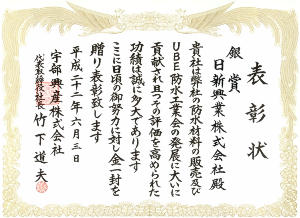 表彰状
銀賞
日新興業株式会社殿
貴社は弊社の防水材料の販売及び
UBE防水工業会の発展に大いに
貢献され且つその評価を高められた
功績は誠に多大であります
ここに日頃の御努力に対し金一封を
贈り表彰致します
平成二十二年六月三日
宇部興産株式会社
代表取締役社長 竹下道夫